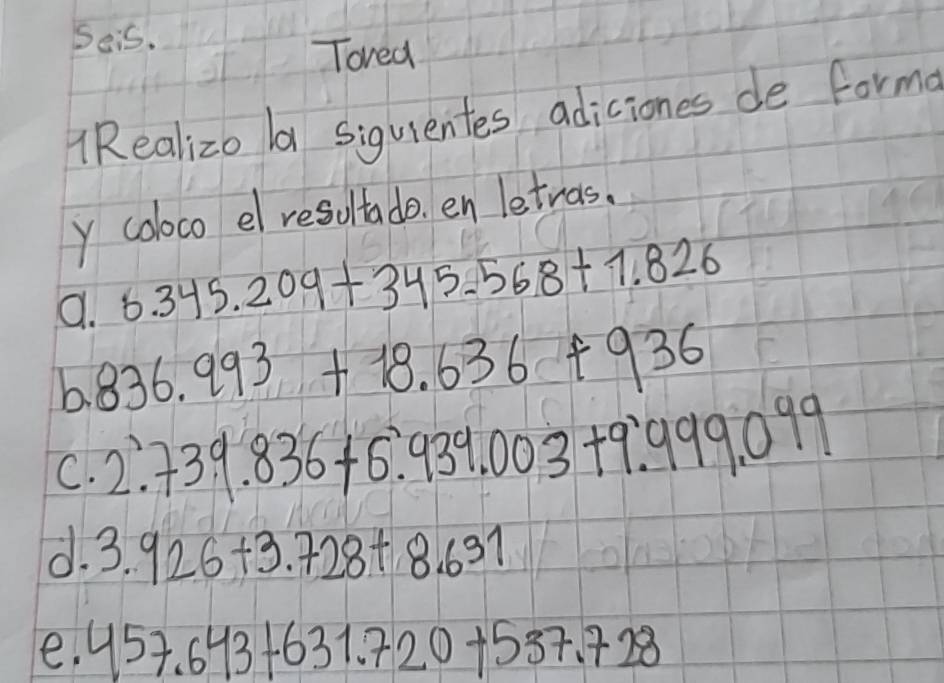 Seis.
Tarea
1 Realizo la siguientes adiciones de forma
y coloco el resultado. en letras.
a. 6.345.209 + 345.568 + 1.826
b. 836.993 + 18.636 + 936
c. 2.739.836 + 6.939.003 + 9.999.099
d. 3.926 + 3.728 + 8.631
e. 457.643 + 631.720 + 537.728